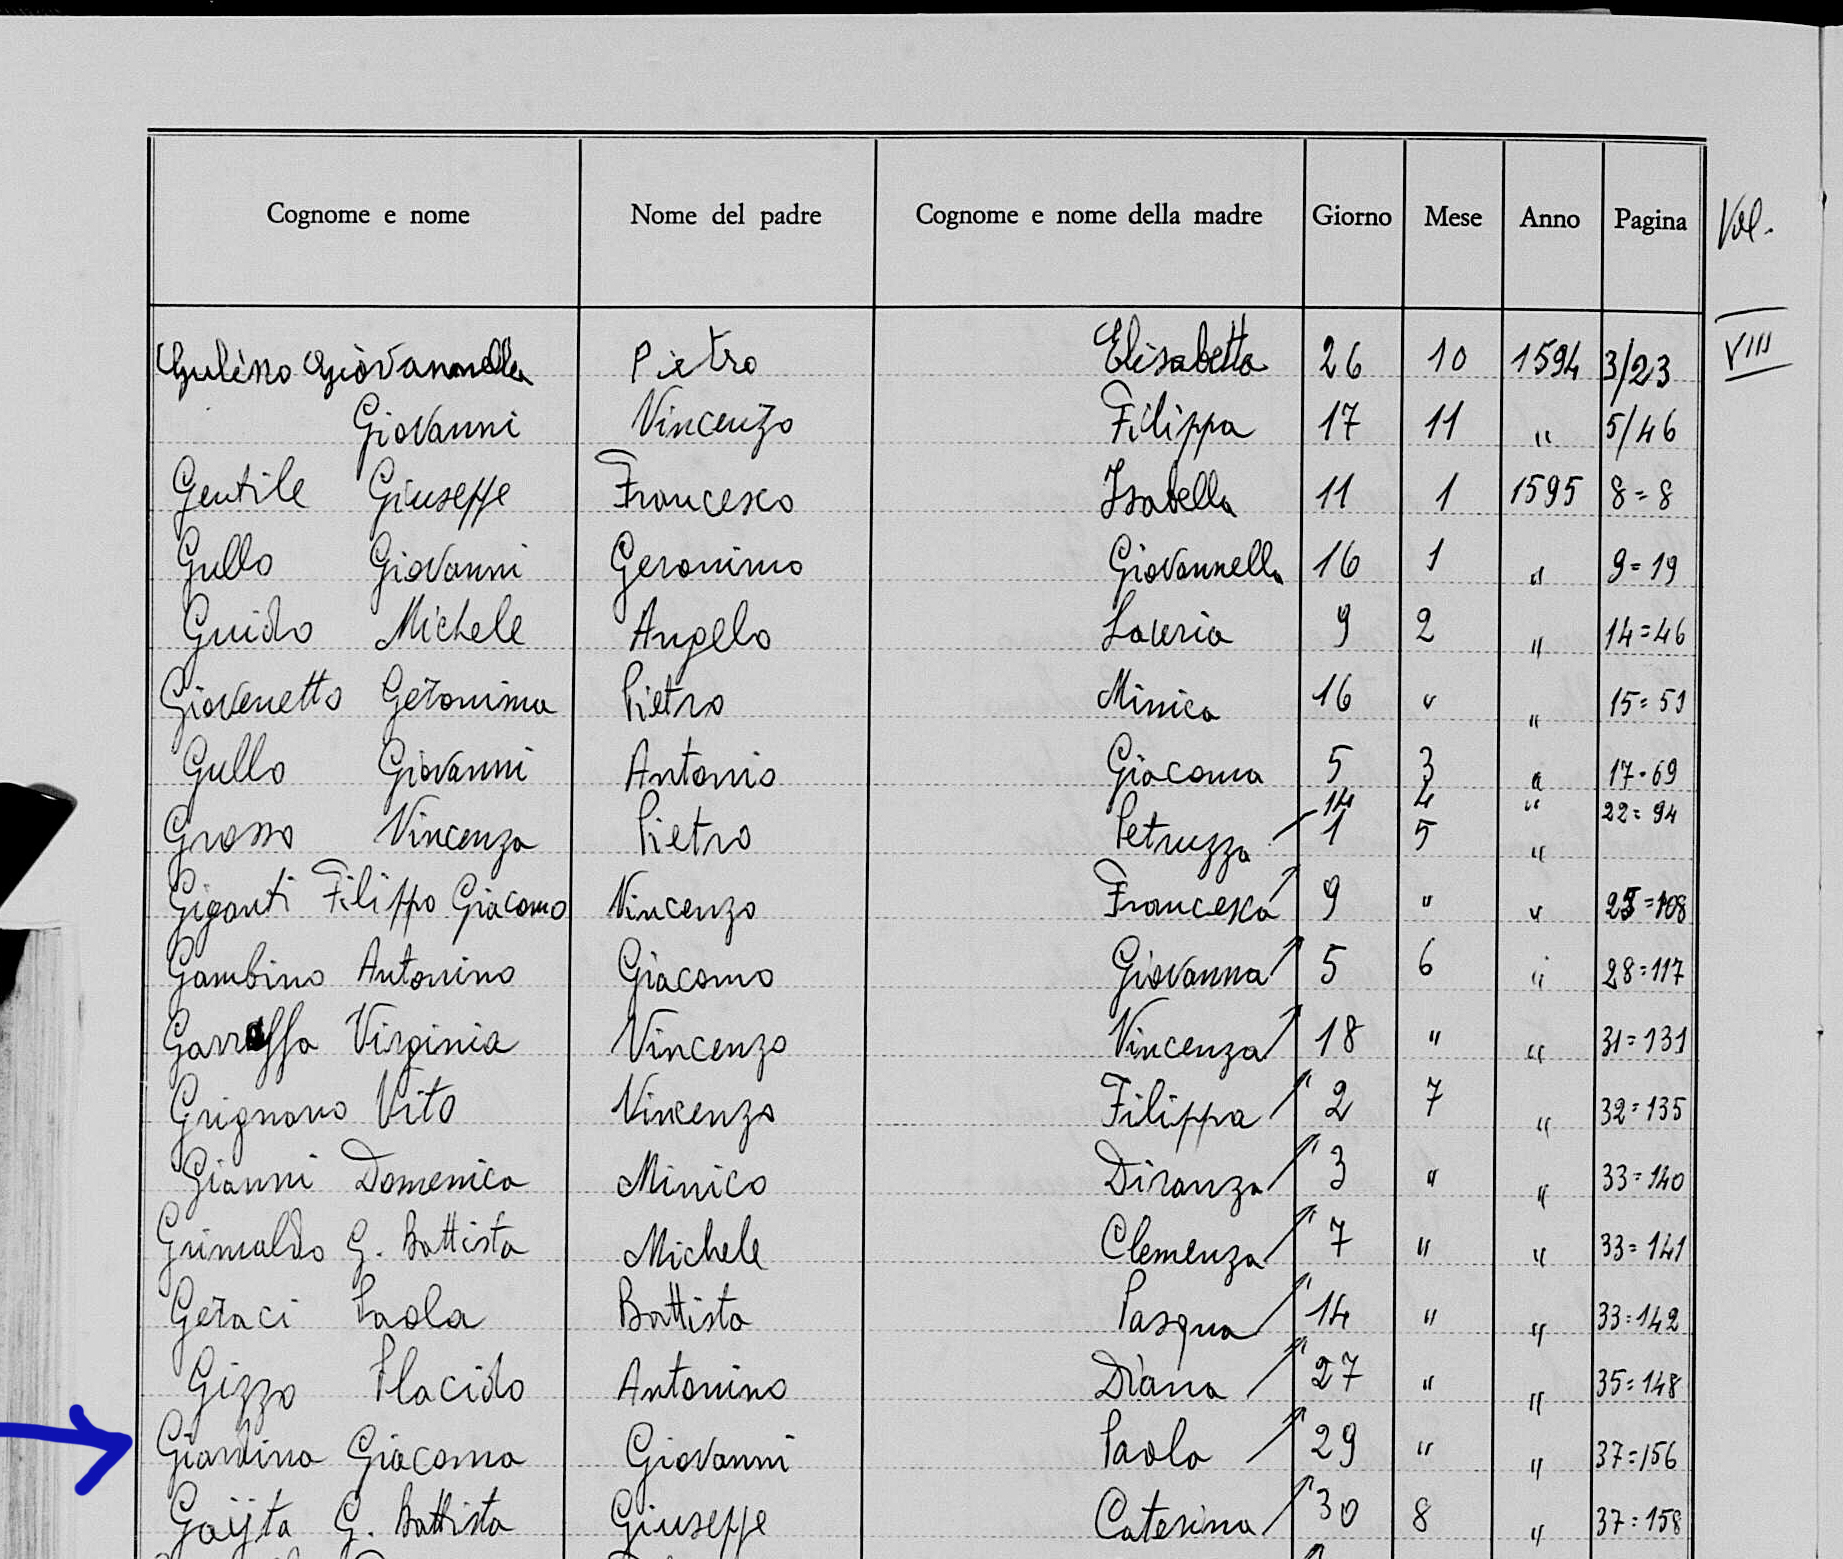 Cognome e nome Nome del padre Cognome e nome della madre Giorno Mese Anno Pagina Vol.
Gulino Giovannella Pietro Elisabetta 26 10 1594 3/23 VIII
Giovanni Vincenzo Filippa 17 11 " 5/46
Gentile Giuseppe Francesco Isabella 11 1 1595 8=8
Gullo Giovanni Geronimo Giovannella 16 1 " 9=19
Guido Michele Angelo Lauria 9 2 " 14=46
Giovenetto Geronima Pietro Minica 16 " " 15=51
Gullo Giovanni Antonio Giacoma 5 3 " 17=69
14 4 " 22=94
Grosso Vincenza Pietro Petruzza 1 5 "
Giganti Filippo Giacomo Vincenzo Francesca 9 " " 25=108
Gambino Antonino Giacomo Giovanna 5 6 " 28=117
Garraffa Virginia Vincenzo Vincenza 18 " " 31=131
Grignano Vito Vincenzo Filippa 2 7 " 32=135
Gianni Domenica Minico Diranza 3 " " 33=140
Grimaldo G. Battista Michele Clemenza 7 " " 33=141
Geraci Paola Battista Pasqua 14 " " 33=142
Gizzo Placido Antonino Diana 27 " " 35=148
Giardina Giacoma Giovanni Paola 29 " " 37=156
Gaijta G. Battista Giuseppe Caterina 30 8 " 37=158